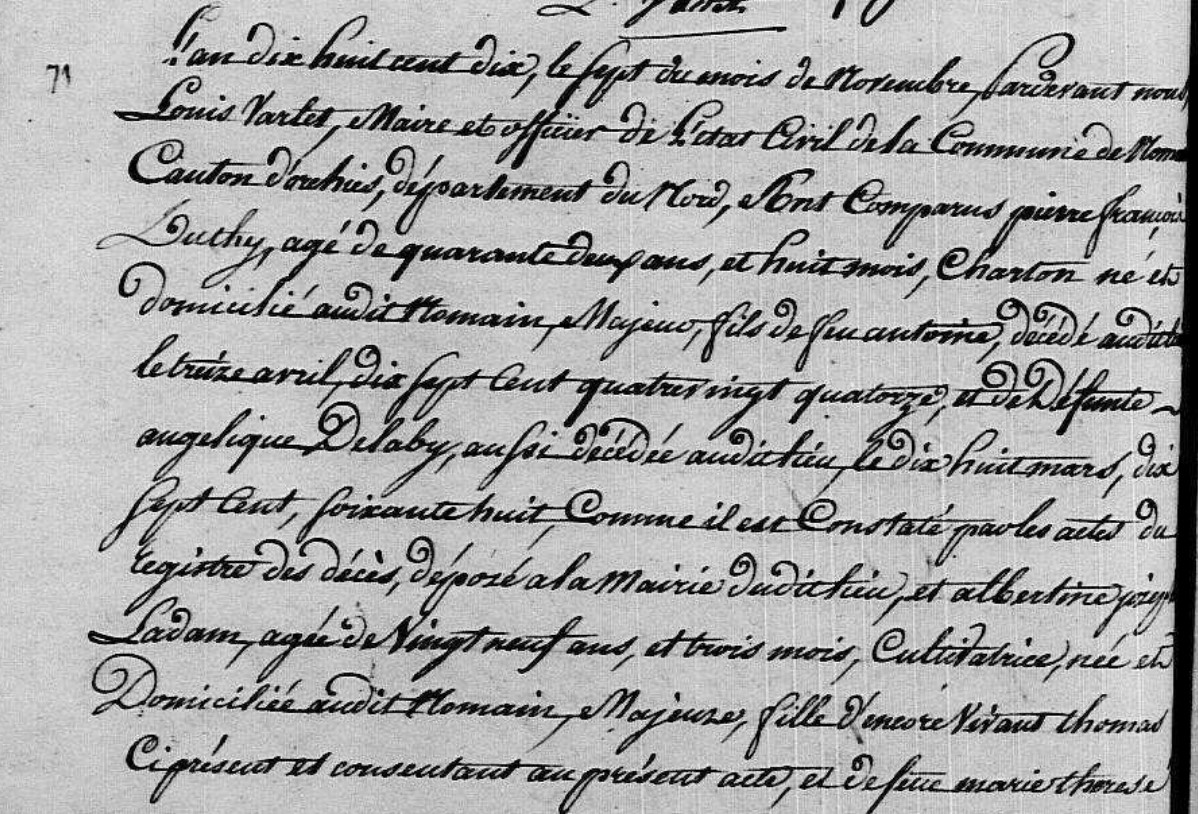 71
L'an dix huit cent dix, le sept du mois de Novembre, Pardevant nous
Louis Varlet, Maire et officier de L'état Civil de la Commune de Nomain
Canton d'orchies, département du Nord, sont Comparus pierre françois
Duthy, agé de quarante deux ans, et huit mois, Charton né et
domicilié audit Nomain, Majeur, fils de feu antoine, décédé audit
le treize avril, dix sept Cent quatrevingt quatorze, et de Défunte
angelique Delaby, aussi décédée audit lieu, le dix huit mars, dix
sept Cent, soixante huit, Comme il est Constaté par les actes du
registre des décès, déposé a la Mairie dudit lieu, et albertine joseph
Ladam, agée de Vingt neuf ans, et trois mois, Cultivatrice, née et
Domiciliée audit Nomain, Majeure, fille d'encore Vivant thomas
Ci présent et consentant au présent acte, et de feue marie therese